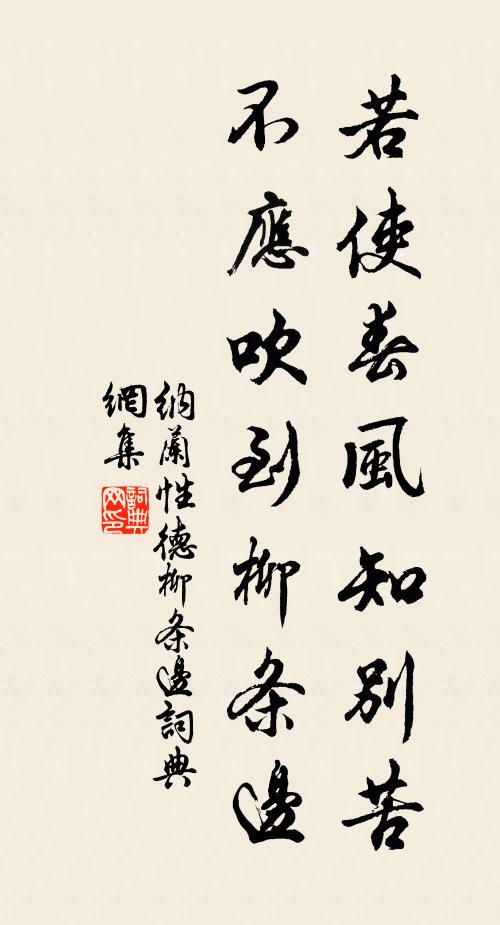 若使春風知別苦
不應吹到柳条邊
納蘭性德柳条邊詞典
網集
詞典
网印